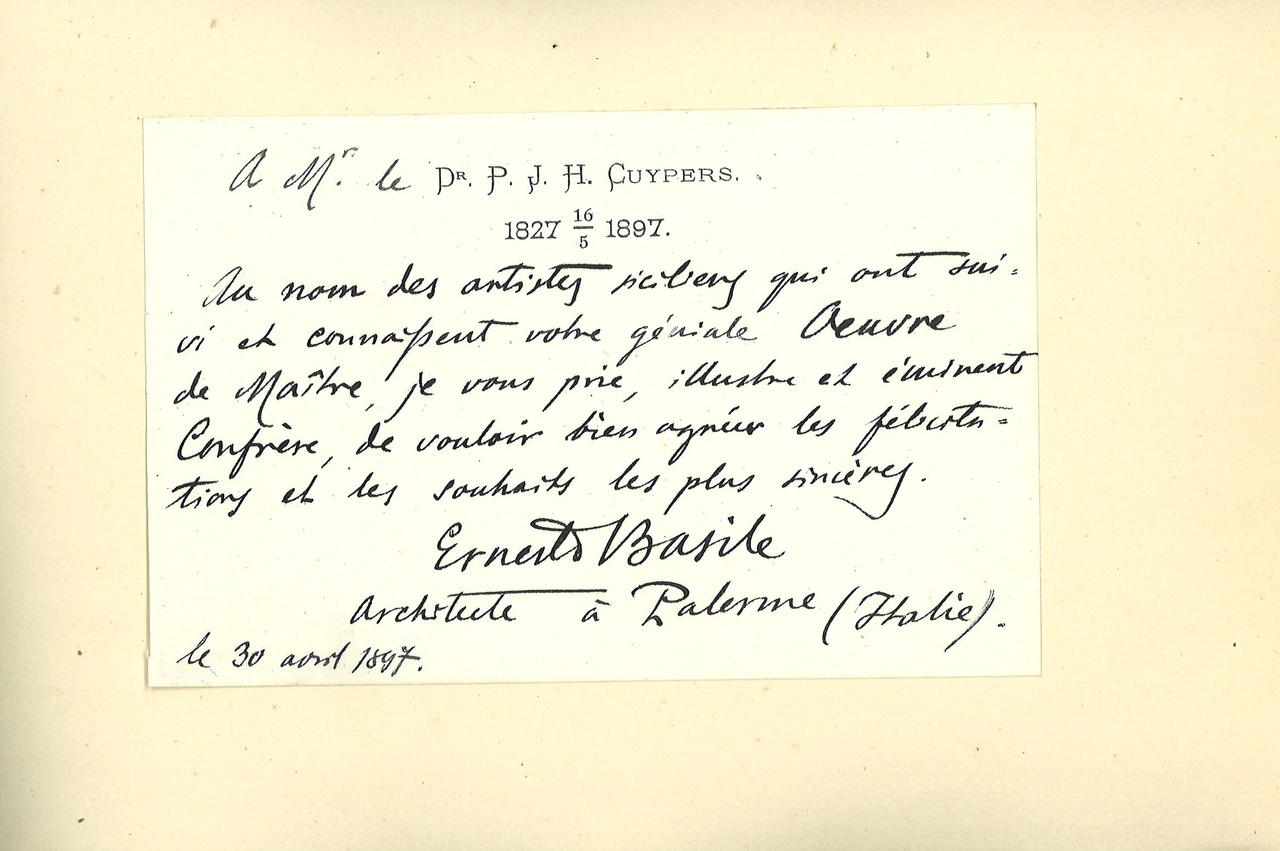 A Mr. le DR. P. J. H. CUYPERS.
1827 16/5 1897.
Au nom des artistes siciliens qui ont sui=
vi et connaissent votre géniale Oeuvre
de Maître, je vous prie, illustre et éminent
Confrère, de vouloir bien agréer les félicita=
tions et les souhaits les plus sincères.
Ernesto Basile
Architecte à Palerme (Italie).
le 30 avril 1897.